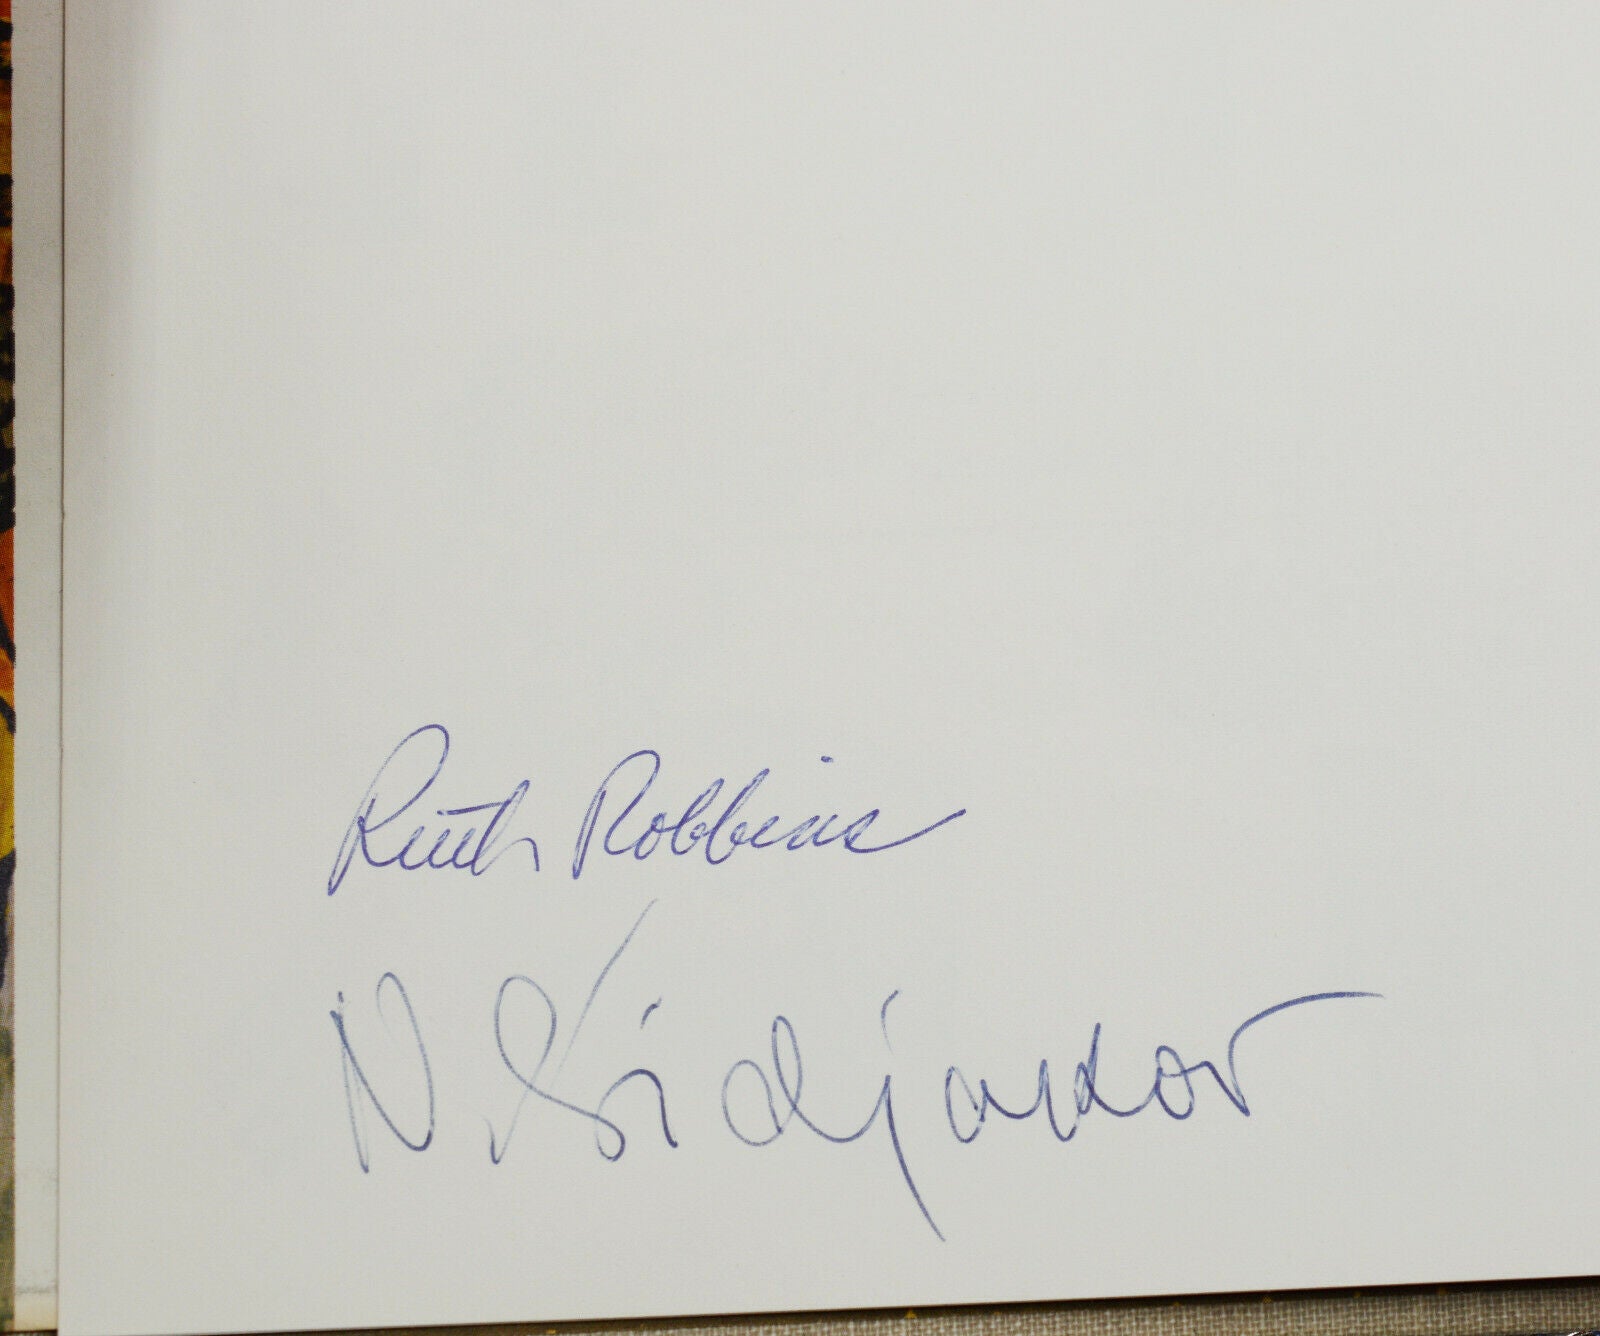 Ruth Robbins
N. Sidjakov